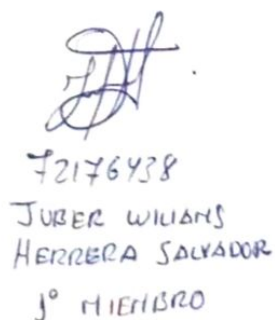 72176438
JUBER WILIAMS
HERRERA SALVADOR
1° MIEMBRO